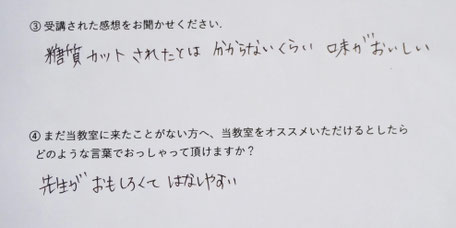 ③ 受講された感想をお聞かせください.
糖質カットされたとは 分からないくらい 味がおいしい
④ まだ当教室に来たことがない方へ、当教室をオススメいただけるとしたら
どのような言葉でおっしゃって頂けますか？
先生が おもしろくて はなしやすい